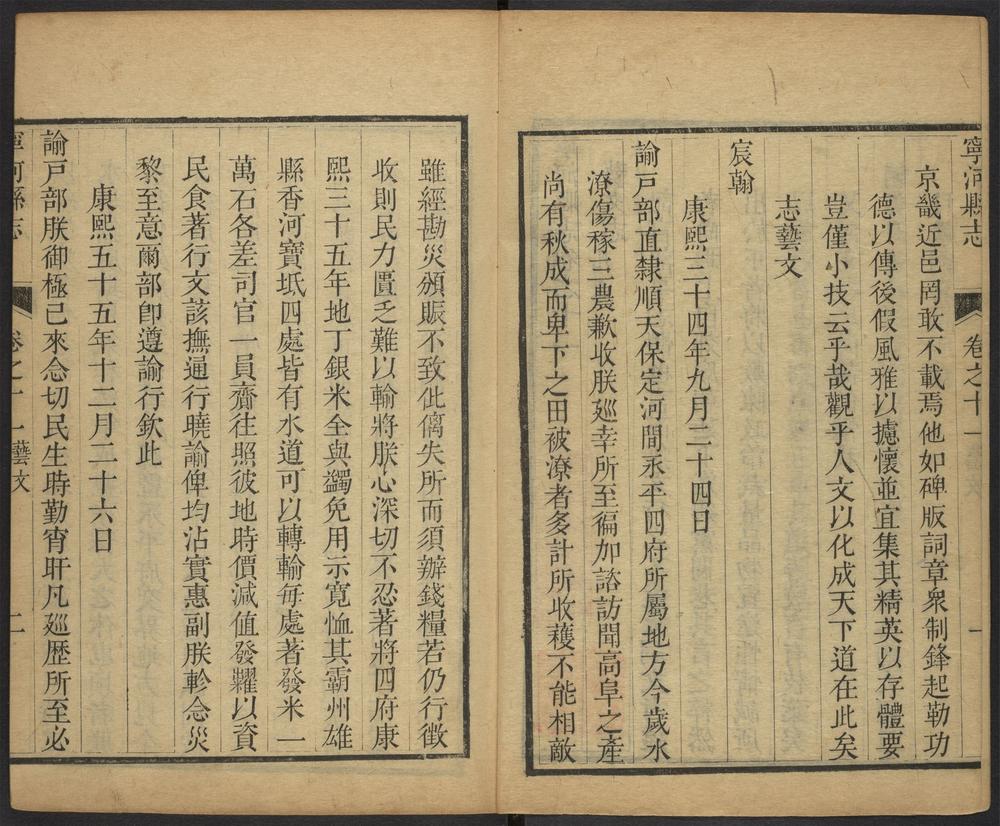 寧河縣志
卷之十一
一
京畿近邑罔敢不載焉他如碑版詞章衆制鋒起勒功
德以傳後假風雅以攄懷並宜集其精英以存體要
豈僅小技云乎哉觀乎人文以化成天下道在此矣
志藝文
宸翰
康熙三十四年九月二十四日
諭戸部直隸順天保定河間永平四府所屬地方今歲水
潦傷稼三農歉收朕廵幸所至徧加諮訪聞高阜之產
尚有秋成而卑下之田被潦者多計所收穫不能相敵
雖經勘災頒賑不致仳㒧失所而須辦錢糧若仍行徵
收則民力匱乏難以輸將朕心深切不忍著將四府康
熙三十五年地丁銀米全與蠲免用示寛恤其霸州雄
縣香河寶坻四處皆有水道可以轉輸每處著發米一
萬石各差司官一員齎往照彼地時價減值發糶以資
民食著行文該撫通行曉諭俾均沾實惠副朕軫念災
黎至意爾部卽遵諭行欽此
康熙五十五年十二月二十六日
諭戸部朕御極已來念切民生時勤宵旰凡廵歷所至必
寧河縣志
卷之十一藝文
二